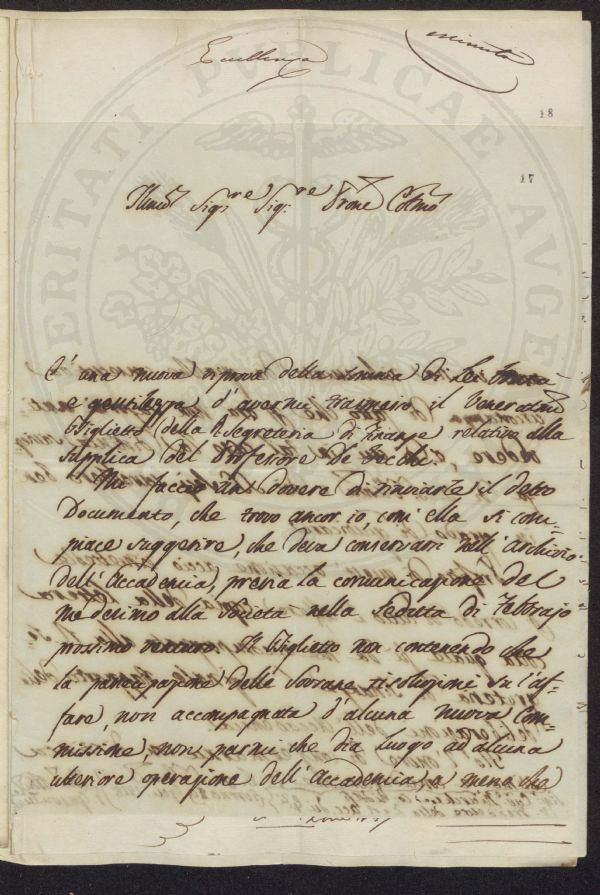 minuta
Eccellenza
18
17
Illmo Sigre Sigre Prone Colmo
È una nuova riprova della somma di Lei bontà
e gentilezza d'avermi trasmesso il Veneratmo
biglietto della R. Segreteria di Finanze relativo alla
supplica del Professore De Vecchi.
Mi faccio un dovere di rinviarle il detto
Documento, che trovo ancor io, com'ella si com=
piace suggerire, che deva conservarsi nell'Archivio
dell'Accademia, previa la comunicazione del
medesimo alla Società nella Seduta di Febbrajo
prossimo venturo. Il Biglietto non contenendo che
la partecipazione delle Sovrane risoluzioni su l'af=
fare, non accompagnata d'alcuna nuova Com=
missione, non parmi che dia luogo ad alcuna
ulteriore operazione dell'Accademia, a meno che
VERITATI PUBLICAE AUGE